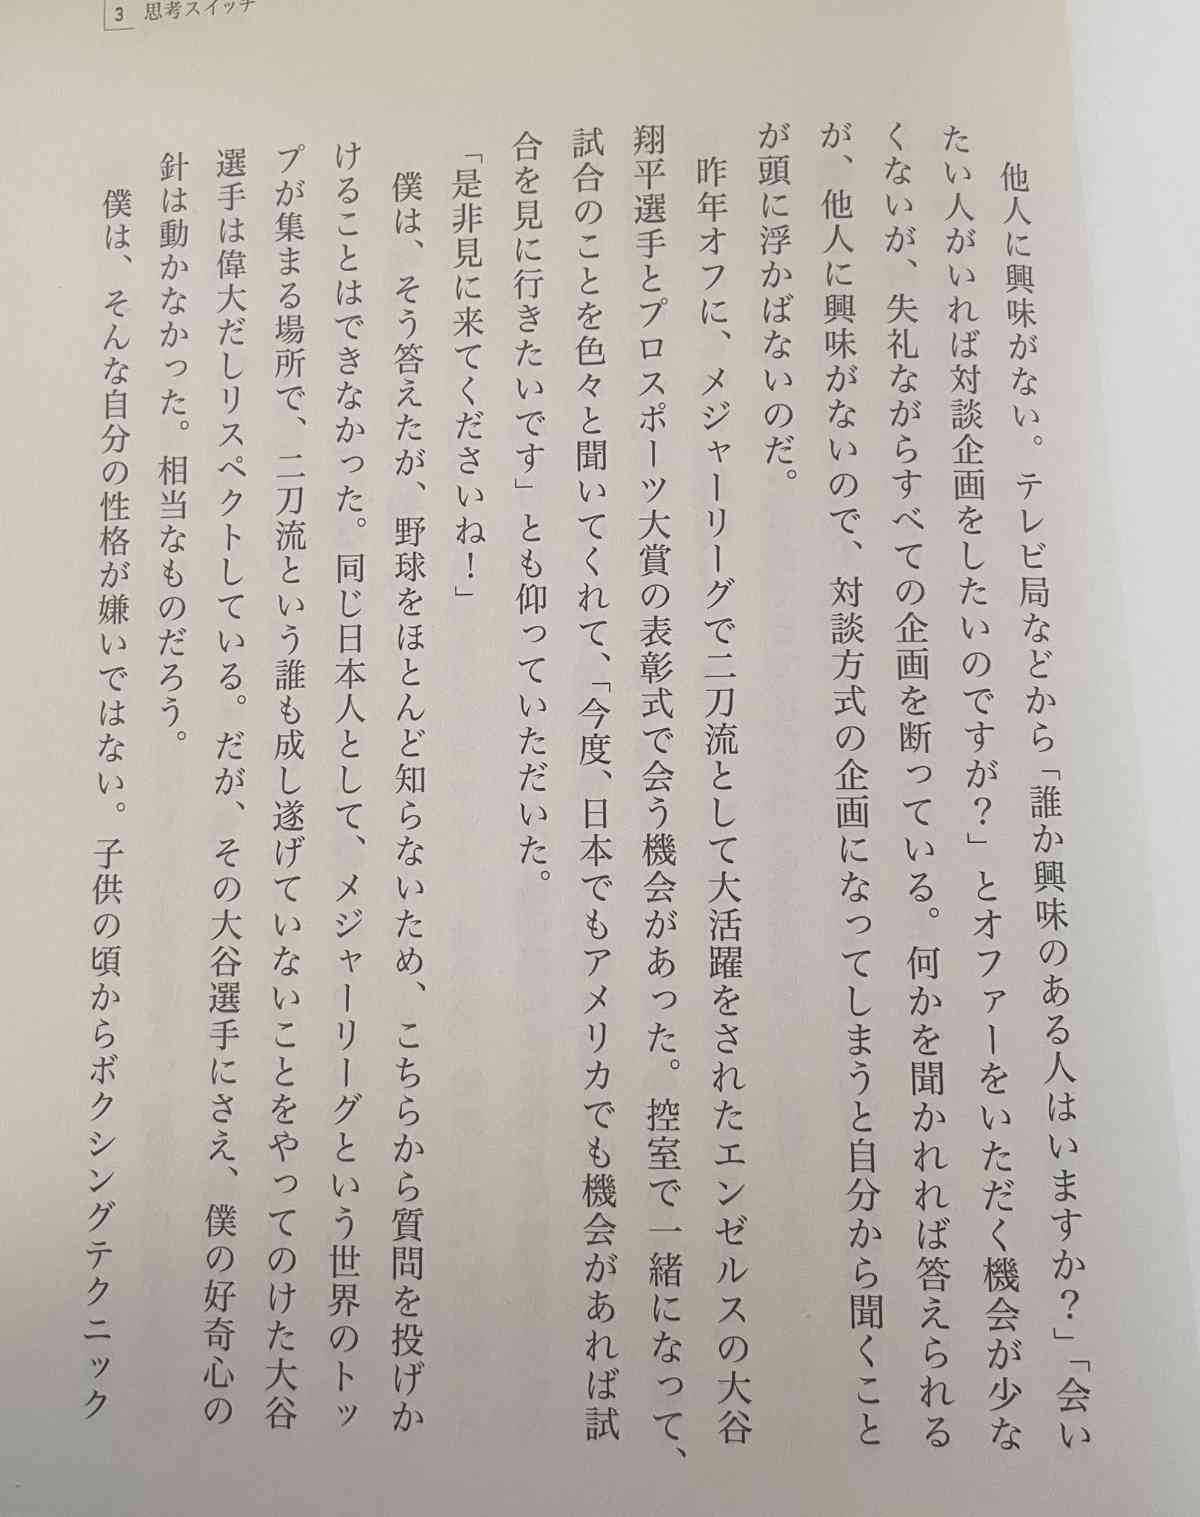 3 思考スイッチ
他人に興味がない。テレビ局などから「誰か興味のある人はいますか？」「会い
たい人がいれば対談企画をしたいのですが？」とオファーをいただく機会が少な
くないが、失礼ながらすべての企画を断っている。何かを聞かれれば答えられる
が、他人に興味がないので、対談方式の企画になってしまうと自分から聞くこと
が頭に浮かばないのだ。
昨年オフに、メジャーリーグで二刀流として大活躍をされたエンゼルスの大谷
翔平選手とプロスポーツ大賞の表彰式で会う機会があった。控室で一緒になって、
試合のことを色々と聞いてくれて、「今度、日本でもアメリカでも機会があれば試
合を見に行きたいです」とも仰っていただいた。
「是非見に来てくださいね！」
僕は、そう答えたが、野球をほとんど知らないため、こちらから質問を投げか
けることはできなかった。同じ日本人として、メジャーリーグという世界のトッ
プが集まる場所で、二刀流という誰も成し遂げていないことをやってのけた大谷
選手は偉大だしリスペクトしている。だが、その大谷選手にさえ、僕の好奇心の
針は動かなかった。相当なものだろう。
僕は、そんな自分の性格が嫌いではない。子供の頃からボクシングテクニック